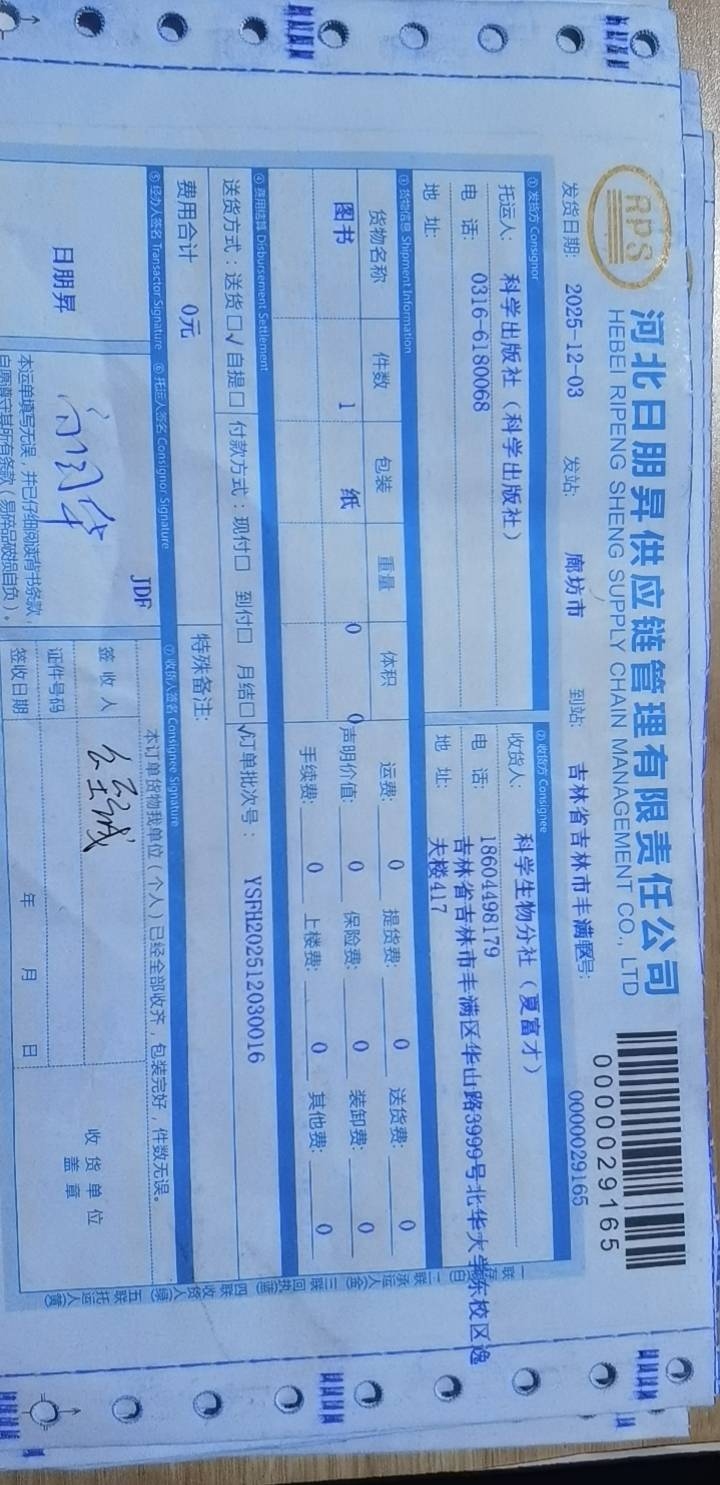 RPS
河北日朋昇供应链管理有限责任公司
HEBEI RIPENG SHENG SUPPLY CHAIN MANAGEMENT CO., LTD
0000029165
发货日期: 2025-12-03 发站: 廊坊市 到站: 吉林省吉林市丰满区 号: 0000029165
①发货方 Consignor
托运人: 科学出版社（科学出版社）
电 话: 0316-6180068
地 址:
②收货方 Consignee
收货人: 科学生物分社（夏富才）
电 话: 18604498179
地 址: 吉林省吉林市丰满区华山路3999号北华大学东校区逸
夫楼417
③货物信息 Shipment Information
货物名称 件数 包装 重量 体积
图书 1 纸 0 0
运费: 0 提货费: 0 送货费: 0
声明价值: 0 保险费: 0 装卸费: 0
手续费: 0 上楼费: 0 其他费: 0
④费用结算 Disbursement Settlement
送货方式: 送货□√ 自提□ 付款方式: 现付□ 到付□ 月结□√ 订单批次号: YSFH202512030016
费用合计 0元 特殊备注:
⑤经办人签名 Transactor Signature ⑥托运人签名 Consignor Signature ⑦收货人签名 Consignee Signature
日朋昇
JDF
本运单填写无误，并已仔细阅读背书条款，
自愿遵守其所有条款（易碎品破损自负）。
本订单货物我单位（个人）已经全部收齐，包装完好，件数无误。
签 收 人
证件号码
签收日期 年 月 日
收货单位
盖 章
二联 承运人
三联 回执
四联 收货人
五联 托运人